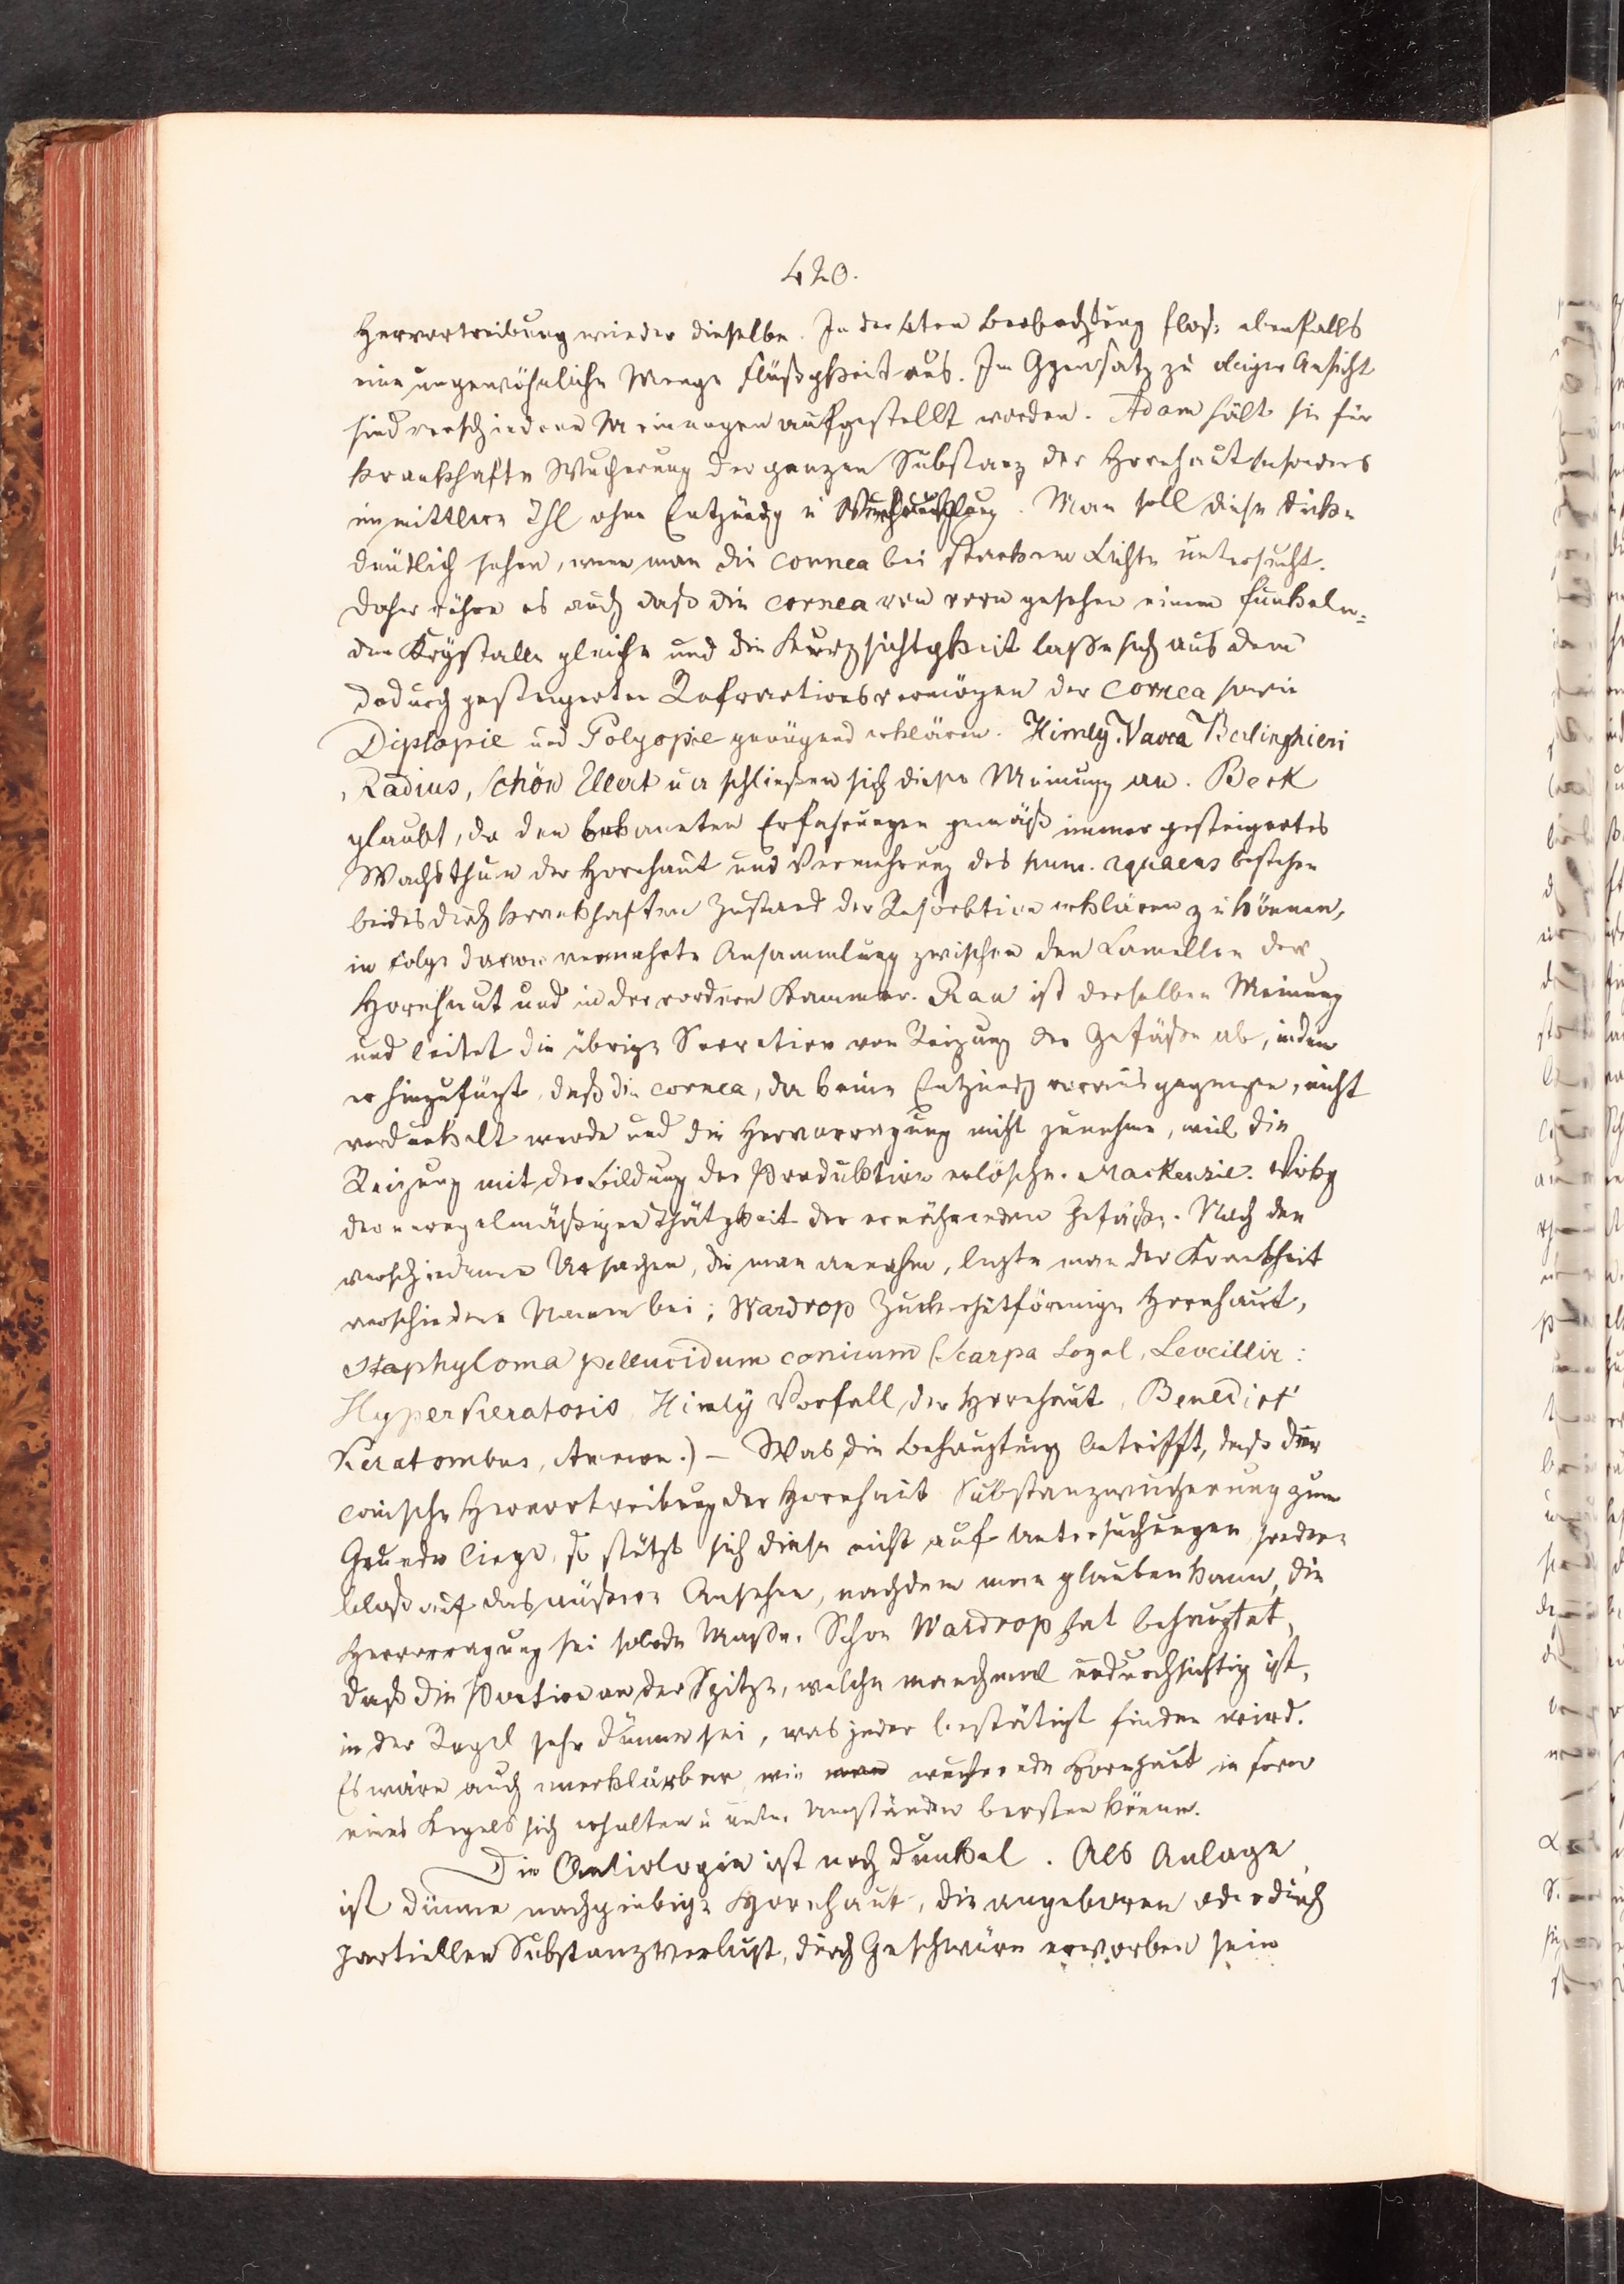 420.
Hervortreibung wieder dieselbe. In der 4ten Beobachtung floß ebenfalls
eine ungewöhnliche Menge Flüßgkeit aus. Im Ggensatz zu obiger Ansicht
sind verschiedene Meinungen aufgestellt worden. Adam hält sie für
krankhafte Wucherung der ganzen Substanz der Hornhaut besonders
im mittlern Thl ohne Entzündg u . Man soll diese Dicke
deutlich sehen, wenn man die cornea bei starkem Lichte untersucht.
Daher rühre es auch daß die cornea von vorn gesehen einem funkeln=
den Krÿstalle gleiche und die Kurzsichtgkeit laße sich aus dem
dadurch gesteigerten Refractionsvermögen der cornea sowie
Diplopie und Polyopie genügend erklären. Himlÿ. Vacca Berlinghieri
, Radius, Schön u a schließen sich dieser Meinung an. Beck
glaubt, da den bekannten Erfahrungen gemäß immer gesteigertes
Wachsthum der Hornhaut und Vermehrung des hum. aquaeus bestehen
beides durch krankhaften Zustand der Resorbtion erklären zu können,
in Folge davon vermehrte Ansammlung zwischen den Lamellen der
Hornhaut und in der vordern Kammer. Rau ist derselben Meinung
und leitet die übrige Secretion von Reizung der Gefäße ab, indem
er hinzufügt, daß die cornea, da keine Entzündg vorausgegangen, nicht
verdunkelt werde und die Hervorragung nicht zunehme, weil die
Reizung mit der Bildung der Produktion erlösche. Mackenzie.
der unregelmäßigen Thätgkeit der ernährenden Gefäße. Nach den
verschiedenen Ursachen, die man annahm, legte man der Krankheit
verschiedene Namen bei; Wardrop Zuckerhutförmige Hornhaut,
Staphyloma pellucidum conicum (Scarpa , Leveillir:
Hyperkeratosis, Himlÿ Vorfall der Hornhaut, Benedict
, Ammon.) – Was die Behauptung betrifft, daß der
conische Hervortreibung der Hornhaut Substanzwucherung zum
Grunde liege, so stützt sich diese nicht auf Untersuchungen sondern
bloß auf das äußere Ansehen, nachdem man glauben kann, die
Hervorragung sei solide Maße. Schon Wardrop hat behauptet,
daß die Portion an der Spitze, welche manchmal undurchsichtig ist,
in der Regel sehr dünne sei, was jeder bestätigt finden wird.
Es wäre auch unerklärbar wie wuchernde Hornhaut in Form
eines Kegels sich erhalten u unter Umständen bersten könne.
Die Aetiologie ist noch dunkel. Als Anlage
ist dünne nachgiebige Hornhaut, die angeboren oder durch
partiellen Substanzverlust, durch Geschwüre erworben sein